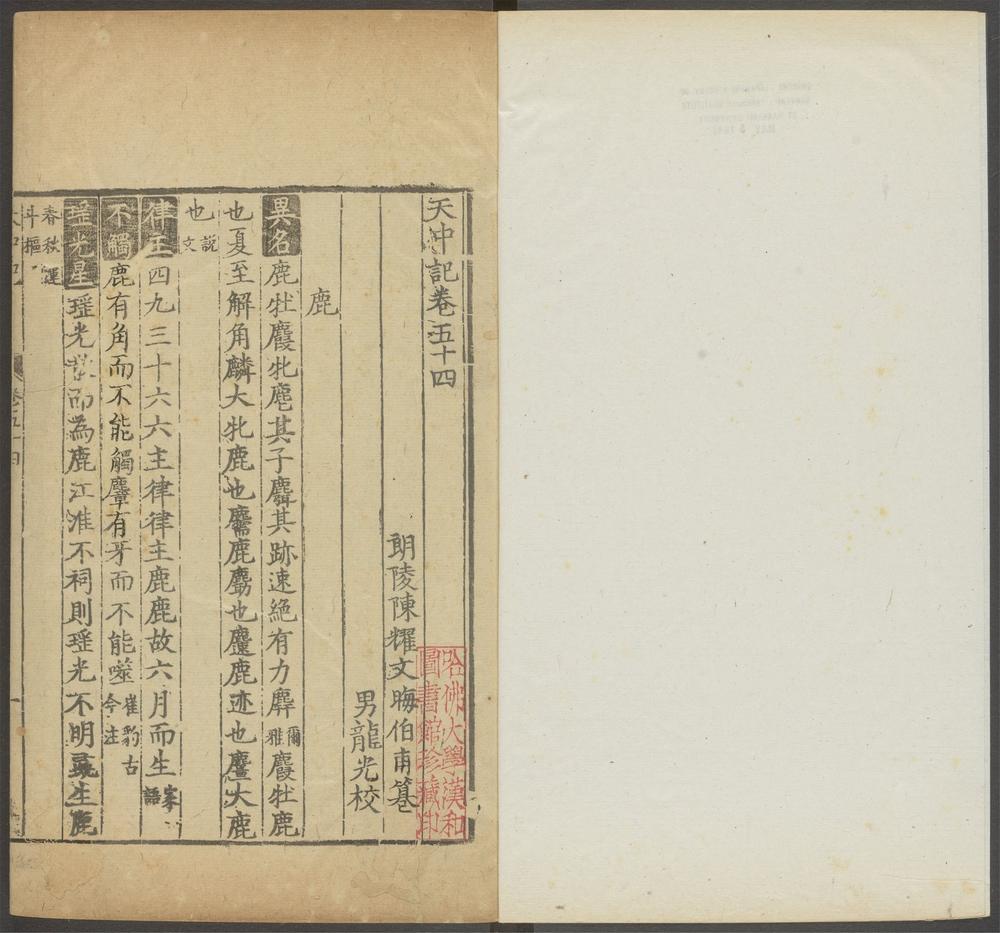 天中記卷五十四
朗陵陳耀文晦伯甫纂
男龍光校
鹿
異名鹿牡麚牝麀其子麛其跡速絕有力麉爾雅麚牡鹿
也夏至解角麟大牝鹿也鹿麛也鹿迹也大鹿
也說文
律主四九三十六六主律律主鹿鹿故六月而生家語
不觸鹿有角而不能觸麞有牙而不能噬崔豹古今注
瑤光星瑤光散而為鹿江淮不祠則瑤光不明生鹿
春秋運斗樞
卷五十四
一
哈佛大學漢和
圖書館珍藏印
MAY 1941